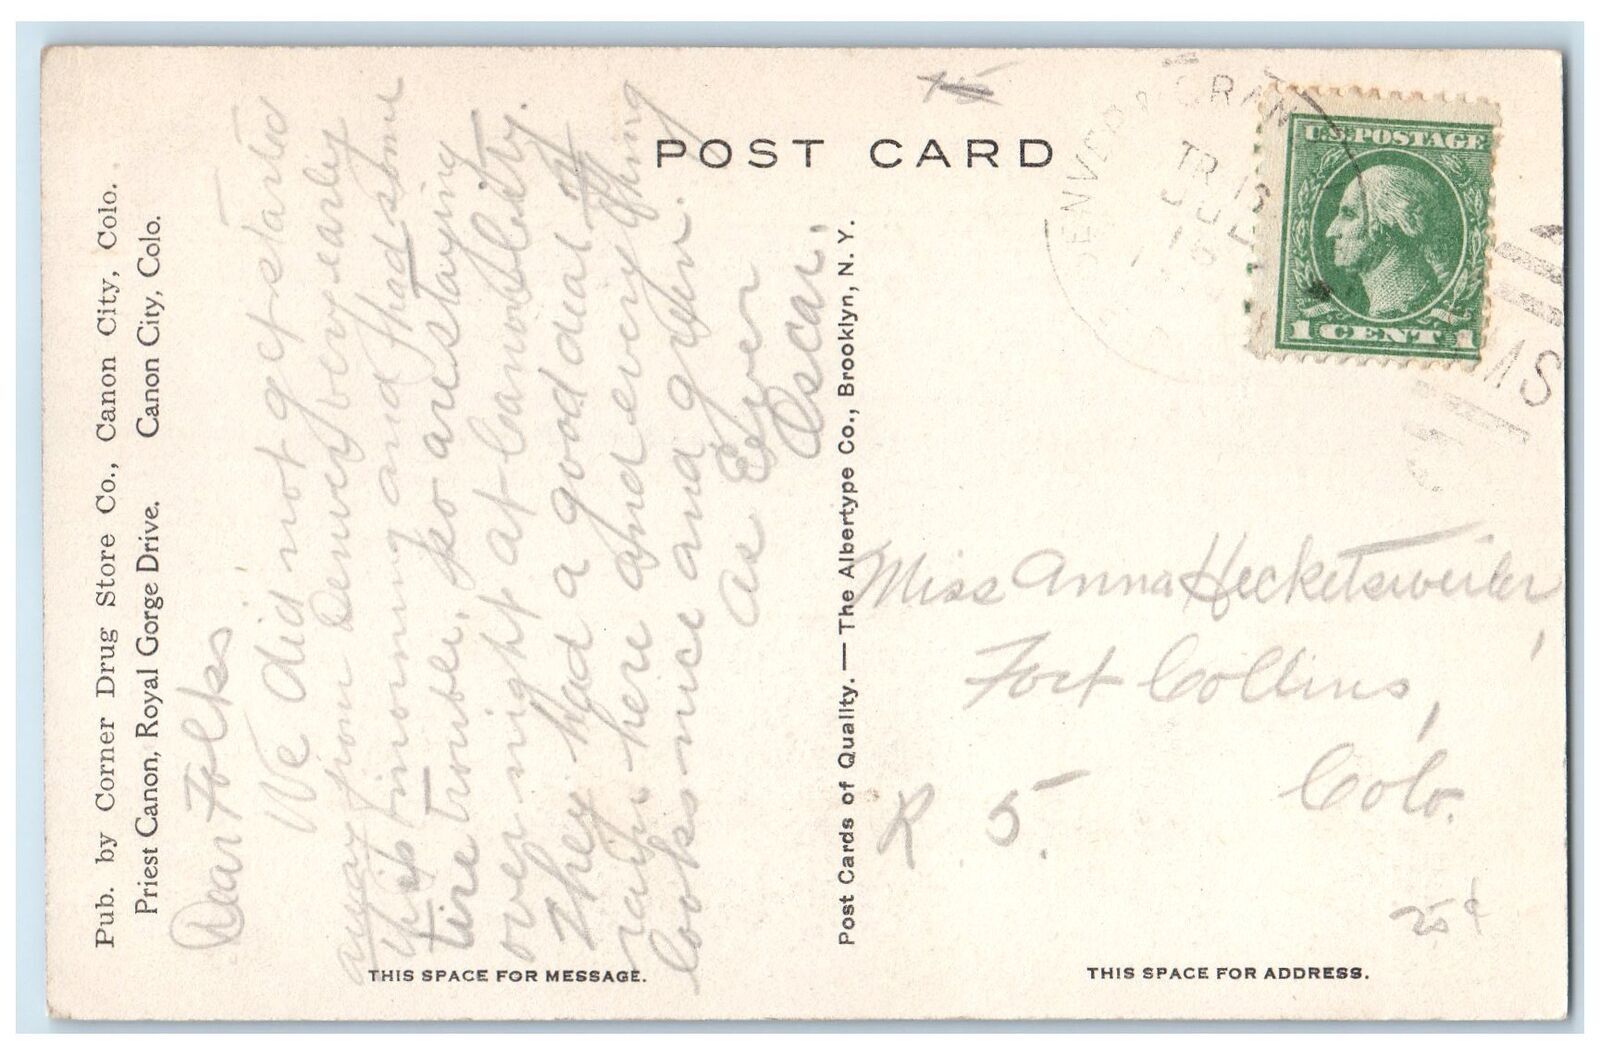 Pub. by Corner Drug Store Co., Canon City, Colo.
Priest Canon, Royal Gorge Drive. Canon City, Colo.
Dear Folks
We did not get started
away from Denver very early
this morning and had some
tire trouble, so are staying
over night at Canon City.
They had a good deal of
rain here and everything
looks nice and green.
As Ever
Oscar.
THIS SPACE FOR MESSAGE.
POST CARD
Post Cards of Quality. — The Albertype Co., Brooklyn, N. Y.
15
DENVER & GRAN
TR 15
JUL
15
U.S. POSTAGE
1 CENT 1
MS
Miss Anna Hecketsweiler,
Fort Collins,
Colo.
R. 5.
25¢
THIS SPACE FOR ADDRESS.